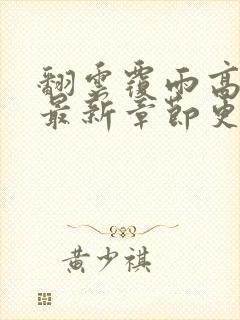 翻雲覆雨高
最新章節更
黃少祺